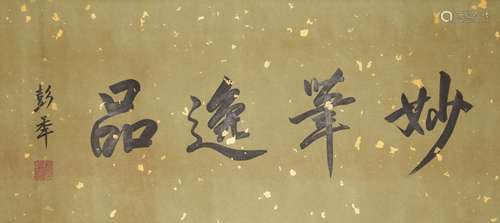 妙筆逸品
彭年